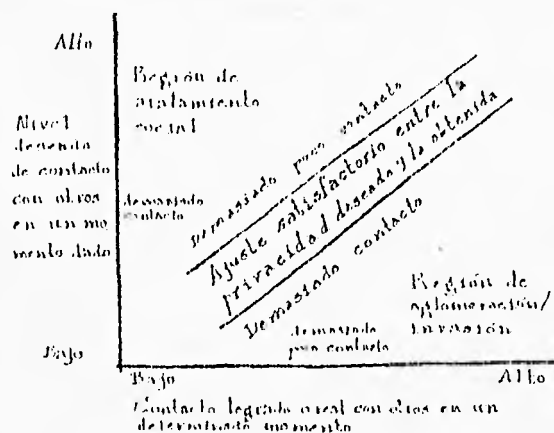 Alto
Región de
aislamiento
social
Nivel
deseado
de contacto
con otros
en un mo
mento dado
demasiado
contacto
Demasiado poco contacto
Ajuste satisfactorio entre la
privacidad deseada y la obtenida
Demasiado contacto
Región de
aglomeración/
invasión
demasiado
poco contacto
Bajo
Bajo
Alto
Contacto logrado o real con otros en un
determinado momento